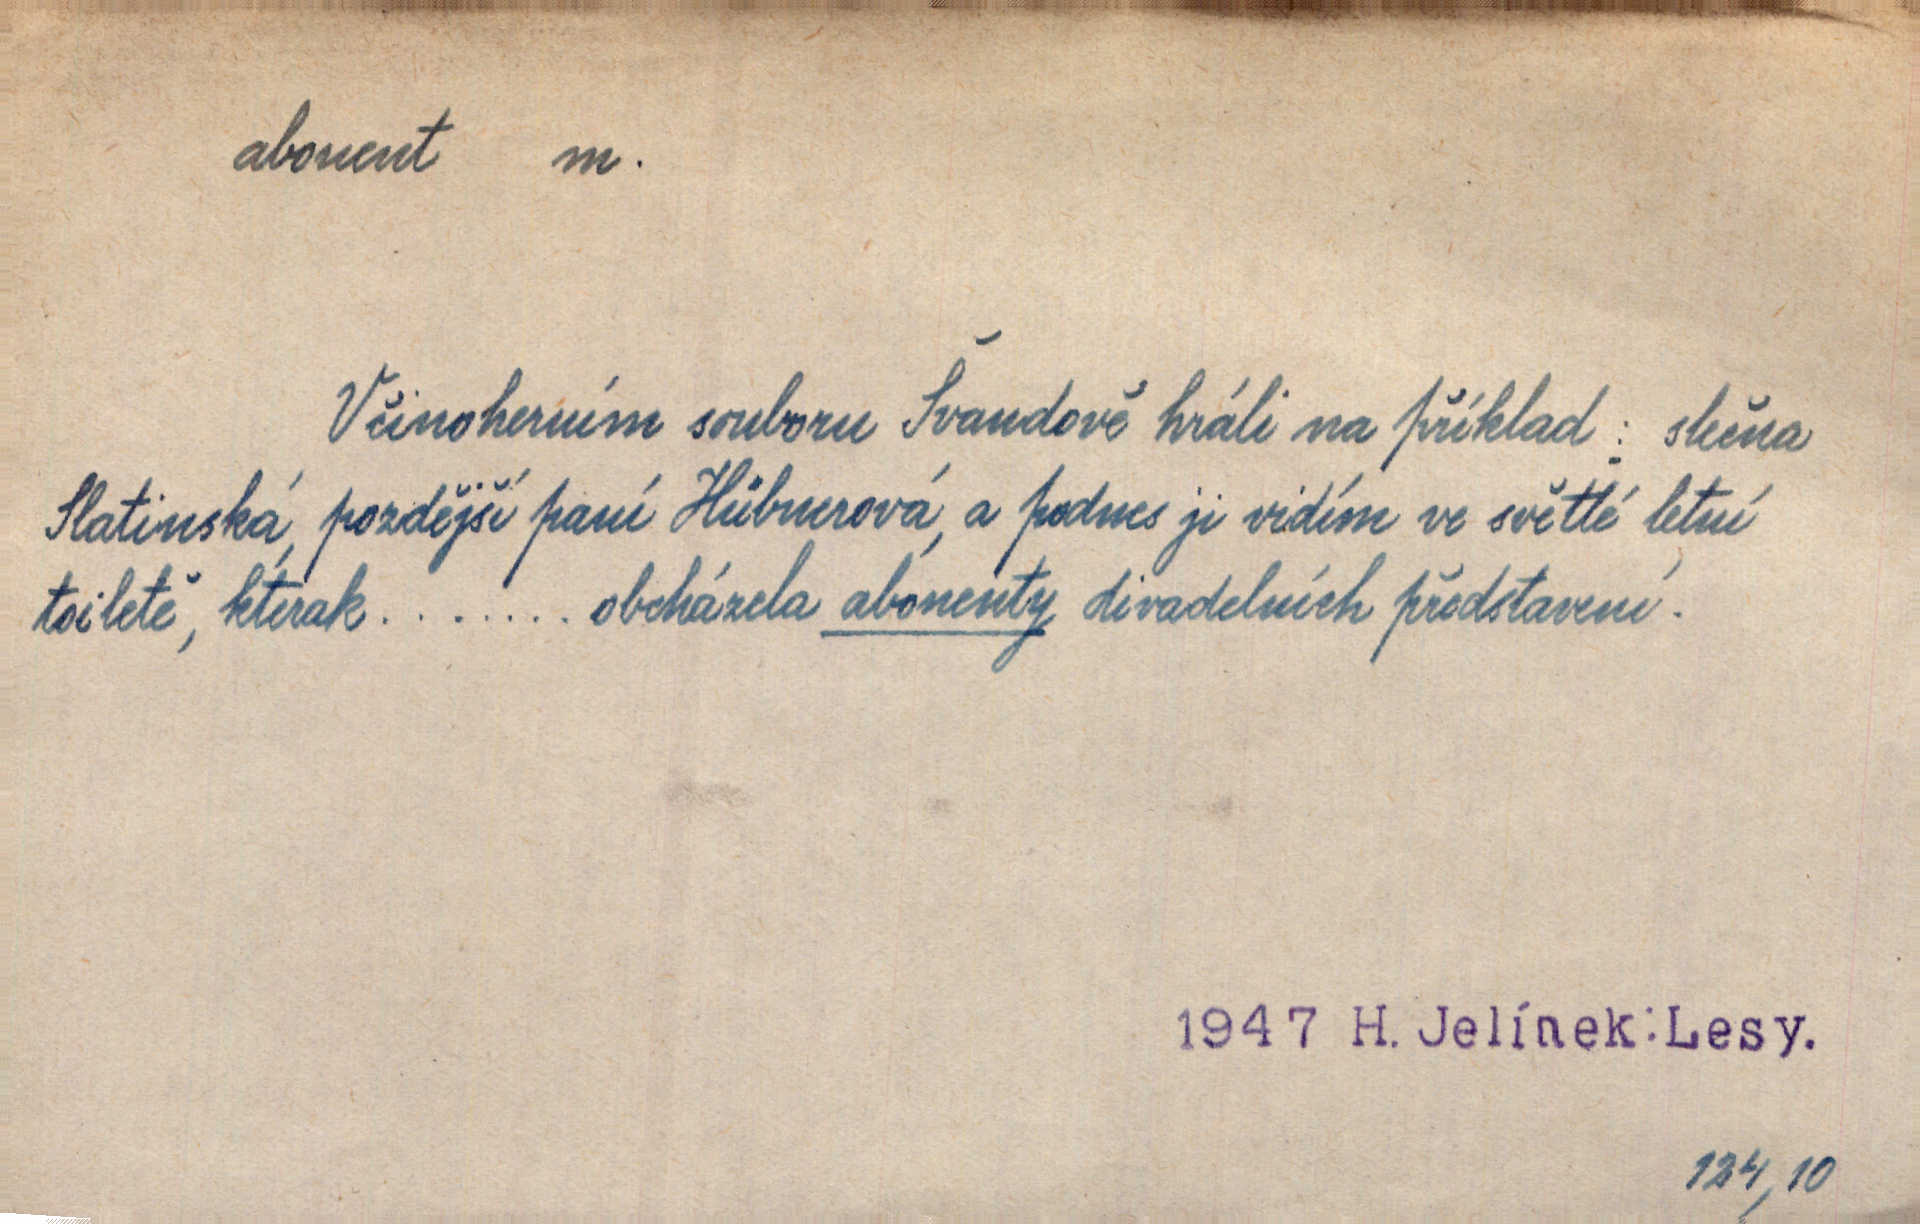 abonent m.
V činoherním souboru Švandově hráli na příklad: slečna
Slatinská, pozdější paní Hübnerová, a podnes ji vidím ve světlé letní
toiletě, kterak....... obcházela abonenty divadelních představení.
1947 H. Jelínek:Lesy.
124,10